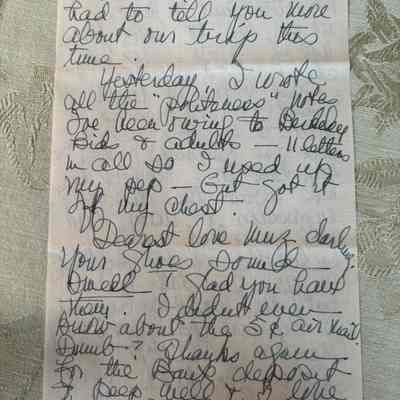 had to tell you more
about our trip this
time.
Yesterday, I wrote
all the "politeness" notes
I've been owing to Berkeley
kids & adults — 11 letters
in all so I used up
my pep — But got it
off my chest.
Dearest love muz darling.
Your shoes sound
swell! Glad you have
them. I didn't even
know about the 5¢ air mail.
Dumb? Thanks again
for the bank deposit
& keep well & love